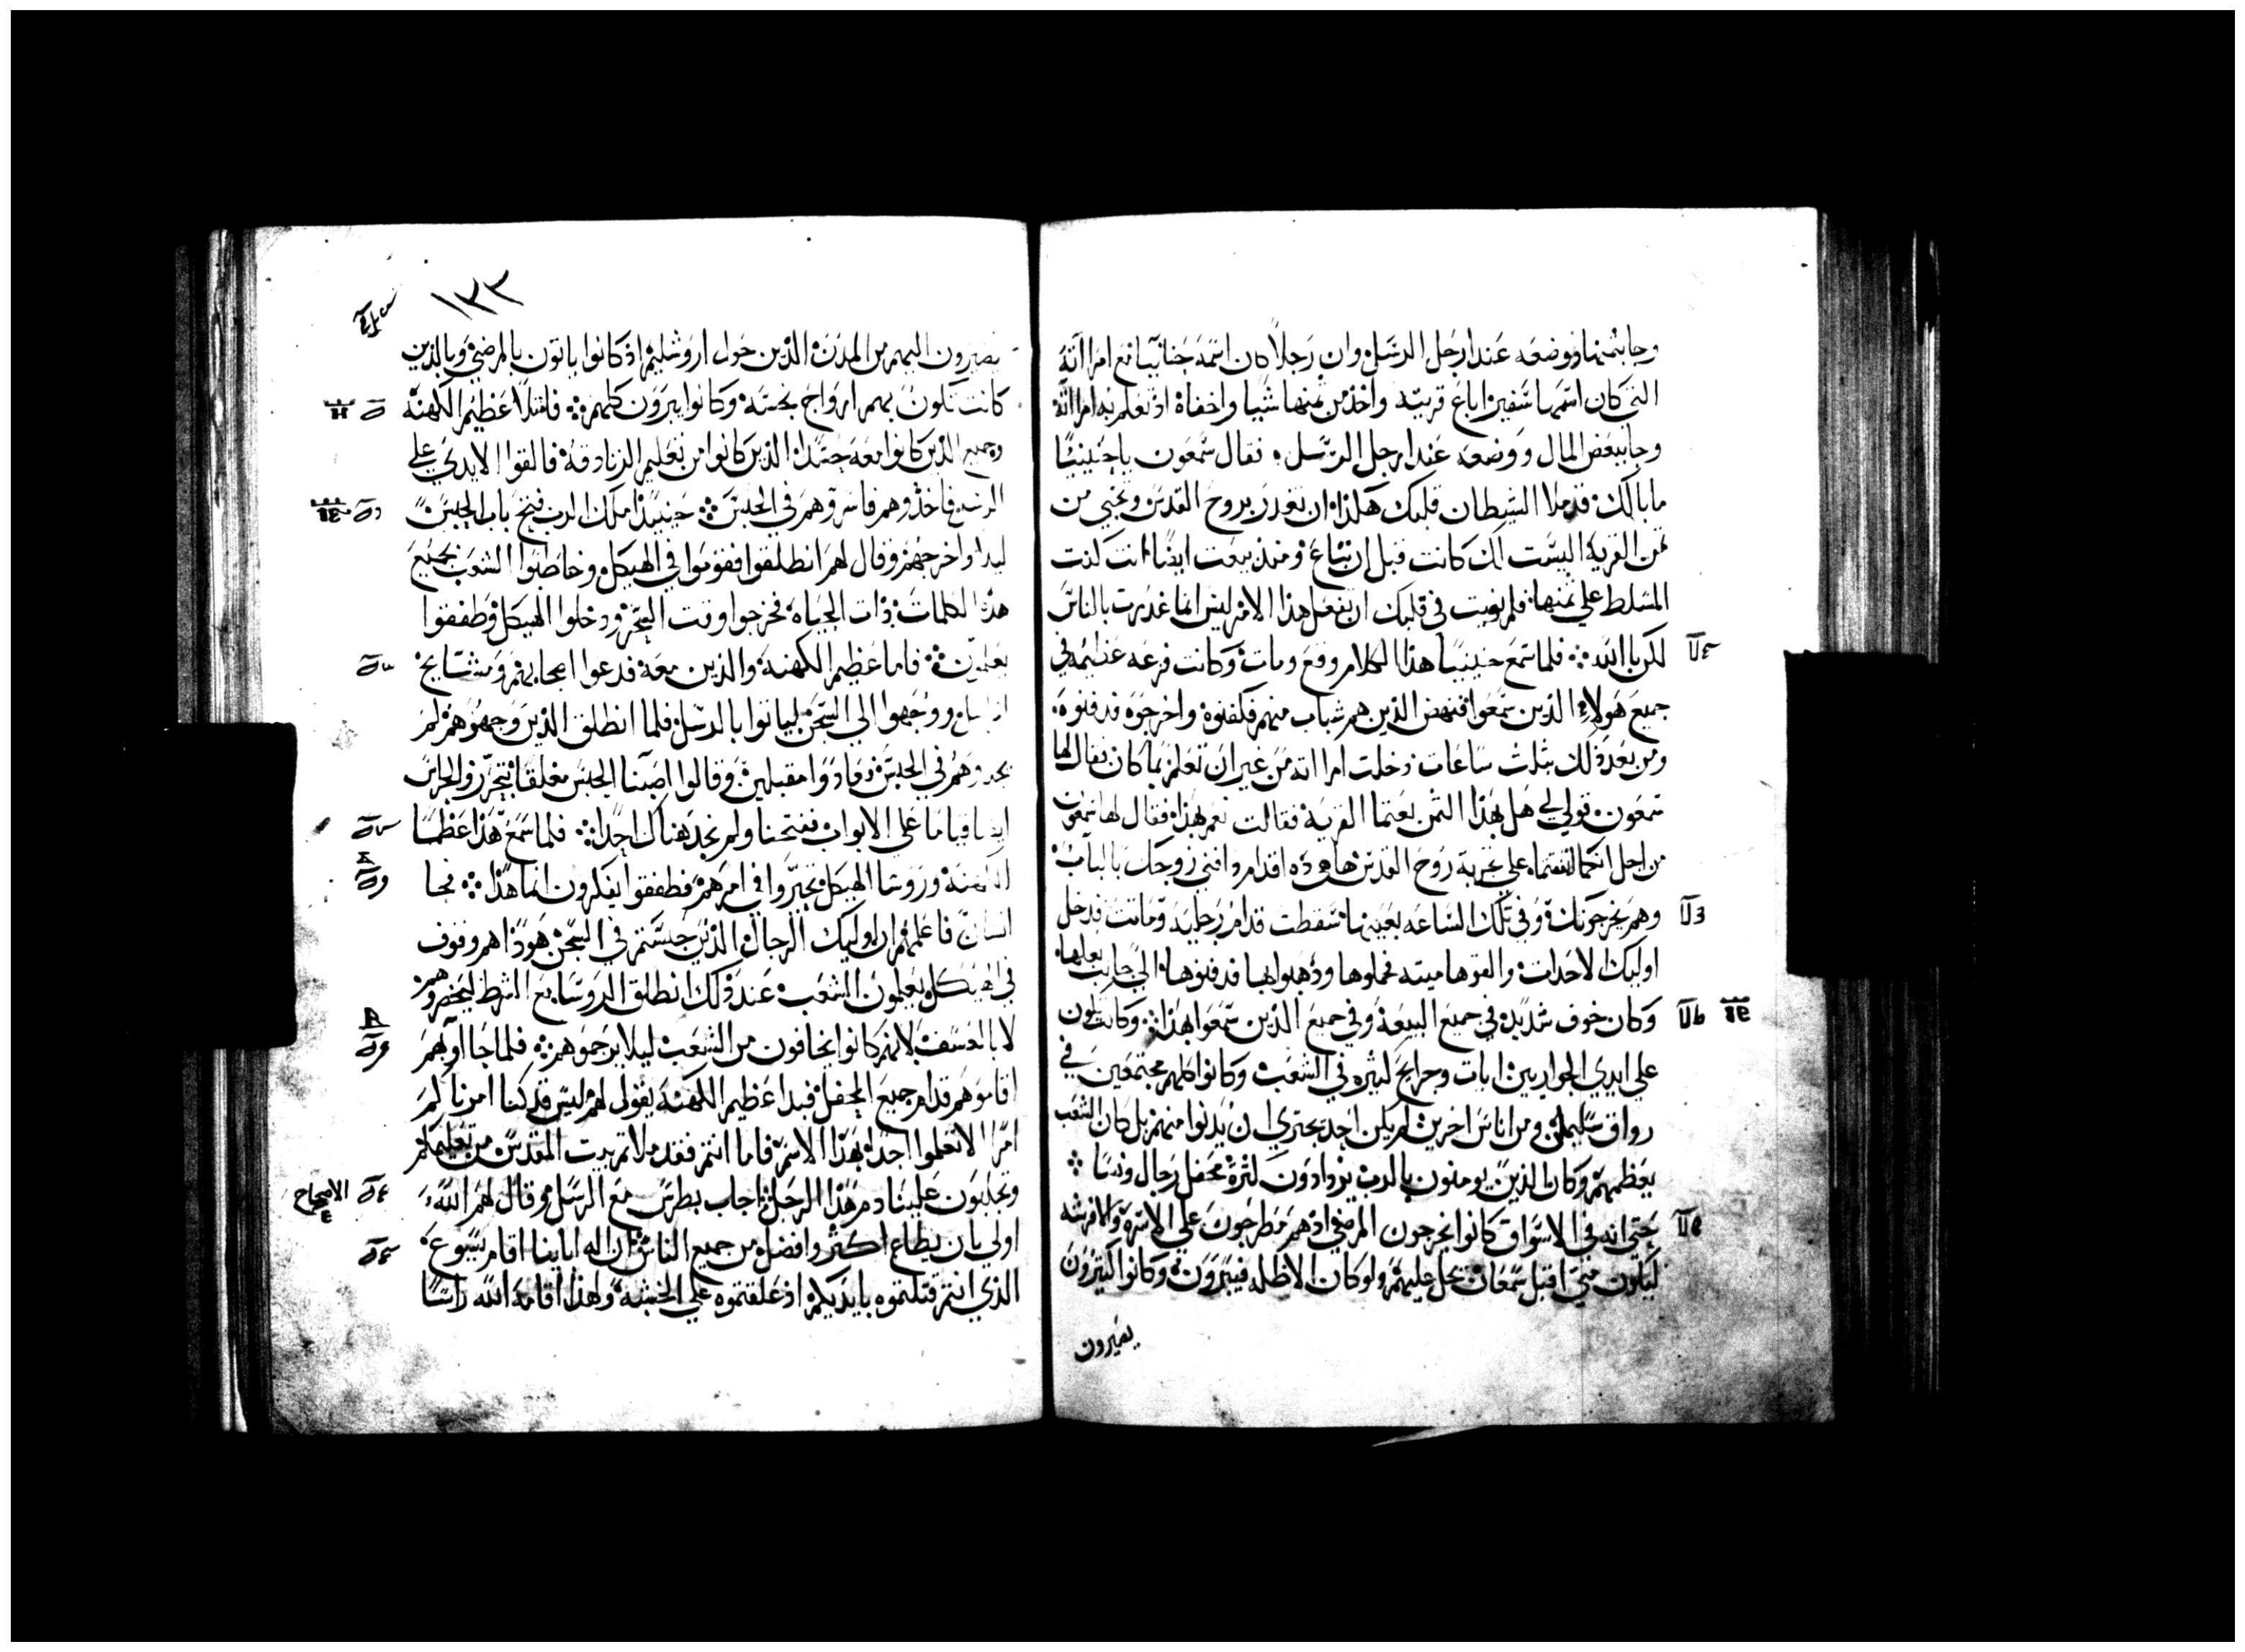 وجا بثمنها ووضعه عند ارجل الرسل وان رجلا كان اسمه حنانيا مع امراته
التي كان اسمها شفيرا باع قريته واخذ من ثمنها شيا واخفاه اذ تعلم به امراته
وجا ببعض المال ووضعه عند ارجل الرسل فقال سمعون يا حنينيا
ما بالك قد ملا الشيطان قلبك هكذا ان تغدر بروح القدس وتخبي من
ثمن القرية اليست لك كانت قبل ان تباع ومنذ بيعت ايضا انت كنت
المسلط علي ثمنها فلم نويت في قلبك ان تفعل هذا الامر ليس انما غدرت بالناس
لكن بالله فلما سمع حنينيا هذا الكلام وقع ومات وكانت فزعه عظيمه في
جميع هولاء الذين سمعوا فنهض الذين هم شباب منهم فكفنوه واخرجوه فدفنوه
ومن بعد ذلك بثلث ساعات دخلت امراته من غير ان تعلم بما كان فقال لها
سمعون قولي لي هل بهذا الثمن بعتما القرية فقالت نعم بهذا فقال لها سمعون
من اجل انكما اتفقتما علي تجربة روح القدس ها هوذه اقدام دافني زوجك بالباب
وهم يخرجونك وفي تلك الساعه بعينها سقطت قدام رجليه وماتت فدخل
اوليك الاحداث والفوها ميته فحملوها وذهبوا بها فدفنوها الي جانب بعلها
وكان خوف شديد في جميع البيعة وفي جميع الذين سمعوا بهذا وكانت تكون
علي ايدي الحواريين ايات وجرايح كثيره في الشعب وكانوا كلهم مجتمعين في
رواق سليمان ومن اناس اخرين لم يكن احد يجتري ان يدنوا منهم بل كان الشعب
يعظمهم وكان الذين يومنون بالرب يزدادون كثرة محفل رجال ونسا
حتي انه في الاسواق كانوا يخرجون المرضي اذ هم مطرحون علي الاسرة والافرشه
ليكون متي اقبل سمعان تحل عليهم ولو كان الا ظله فيبرون وكانوا كثيرون
يصيرون
١٣٣
يصيرون اليهم من المدن الذين حول اورشليم اذ كانوا ياتون بالمرضي وبالذين
كانت تكون بهم ارواح نجسة وكانوا يبرون كلهم فامتلا عظيم الكهنة
وجميع الذين كانوا معه حسدا الذين كانوا من تعليم الزنادقة فالقوا الايدي علي
الرسل فاخذوهم فاسروهم في الحبس حينيذ ملاك الرب فتح باب الحبس
ليلا واخرجهم وقال لهم انطلقوا فقوموا في الهيكل وخاطبوا الشعب بجميع
هذه الكلمات ذات الحياة فخرجوا وقت السحر ودخلوا الهيكل وطفقوا
يعلمون فاما عظيم الكهنة والذين معه فدعوا اصحابهم ومشايخ
اسراييل ووجهوا الي السجن لياتوا بالرسل فلما انطلق الذين وجهوهم لم
يجدوهم في الحبس فعادوا مقبلين وقالوا اصبنا الحبس مغلقا بتحرز والحراس
ايضا قياما علي الابواب ففتحنا ولم نجد هناك احدا فلما سمع هذا عظما
الكهنة وروسا الهيكل تحيروا في امرهم فطفقوا يفكرون انما هذا فجا
انسان فاعلمهم ان اوليك الرجال الذين حبستم في السجن هوذا هم وقوف
في الهيكل يعلمون الشعب عند ذلك انطلق الروسا مع الشرط ليحضروهم
لا بالعسف لانهم كانوا يخافون من الشعب ليلا يرجموهم فلما جاوا بهم
اقاموهم قدام جميع المحفل فبدا عظيم الكهنة يقول لهم ليس قد كنا امرناكم
امرا الا تعلموا احدا بهذا الاسم فاما انتم فقد ملاتم بيت المقدس من تعليمكم
وتجلبون علينا دم هذا الرجل اجاب بطرس مع الرسل وقال لهم الله
الاصحاح
اولي بان يطاع اكثر وافضل من جميع الناس ان اله اباينا اقام يسوع
الذي انتم قتلتموه بايديكم اذ علقتموه علي الخشبة ولهذا اقامه الله راسا